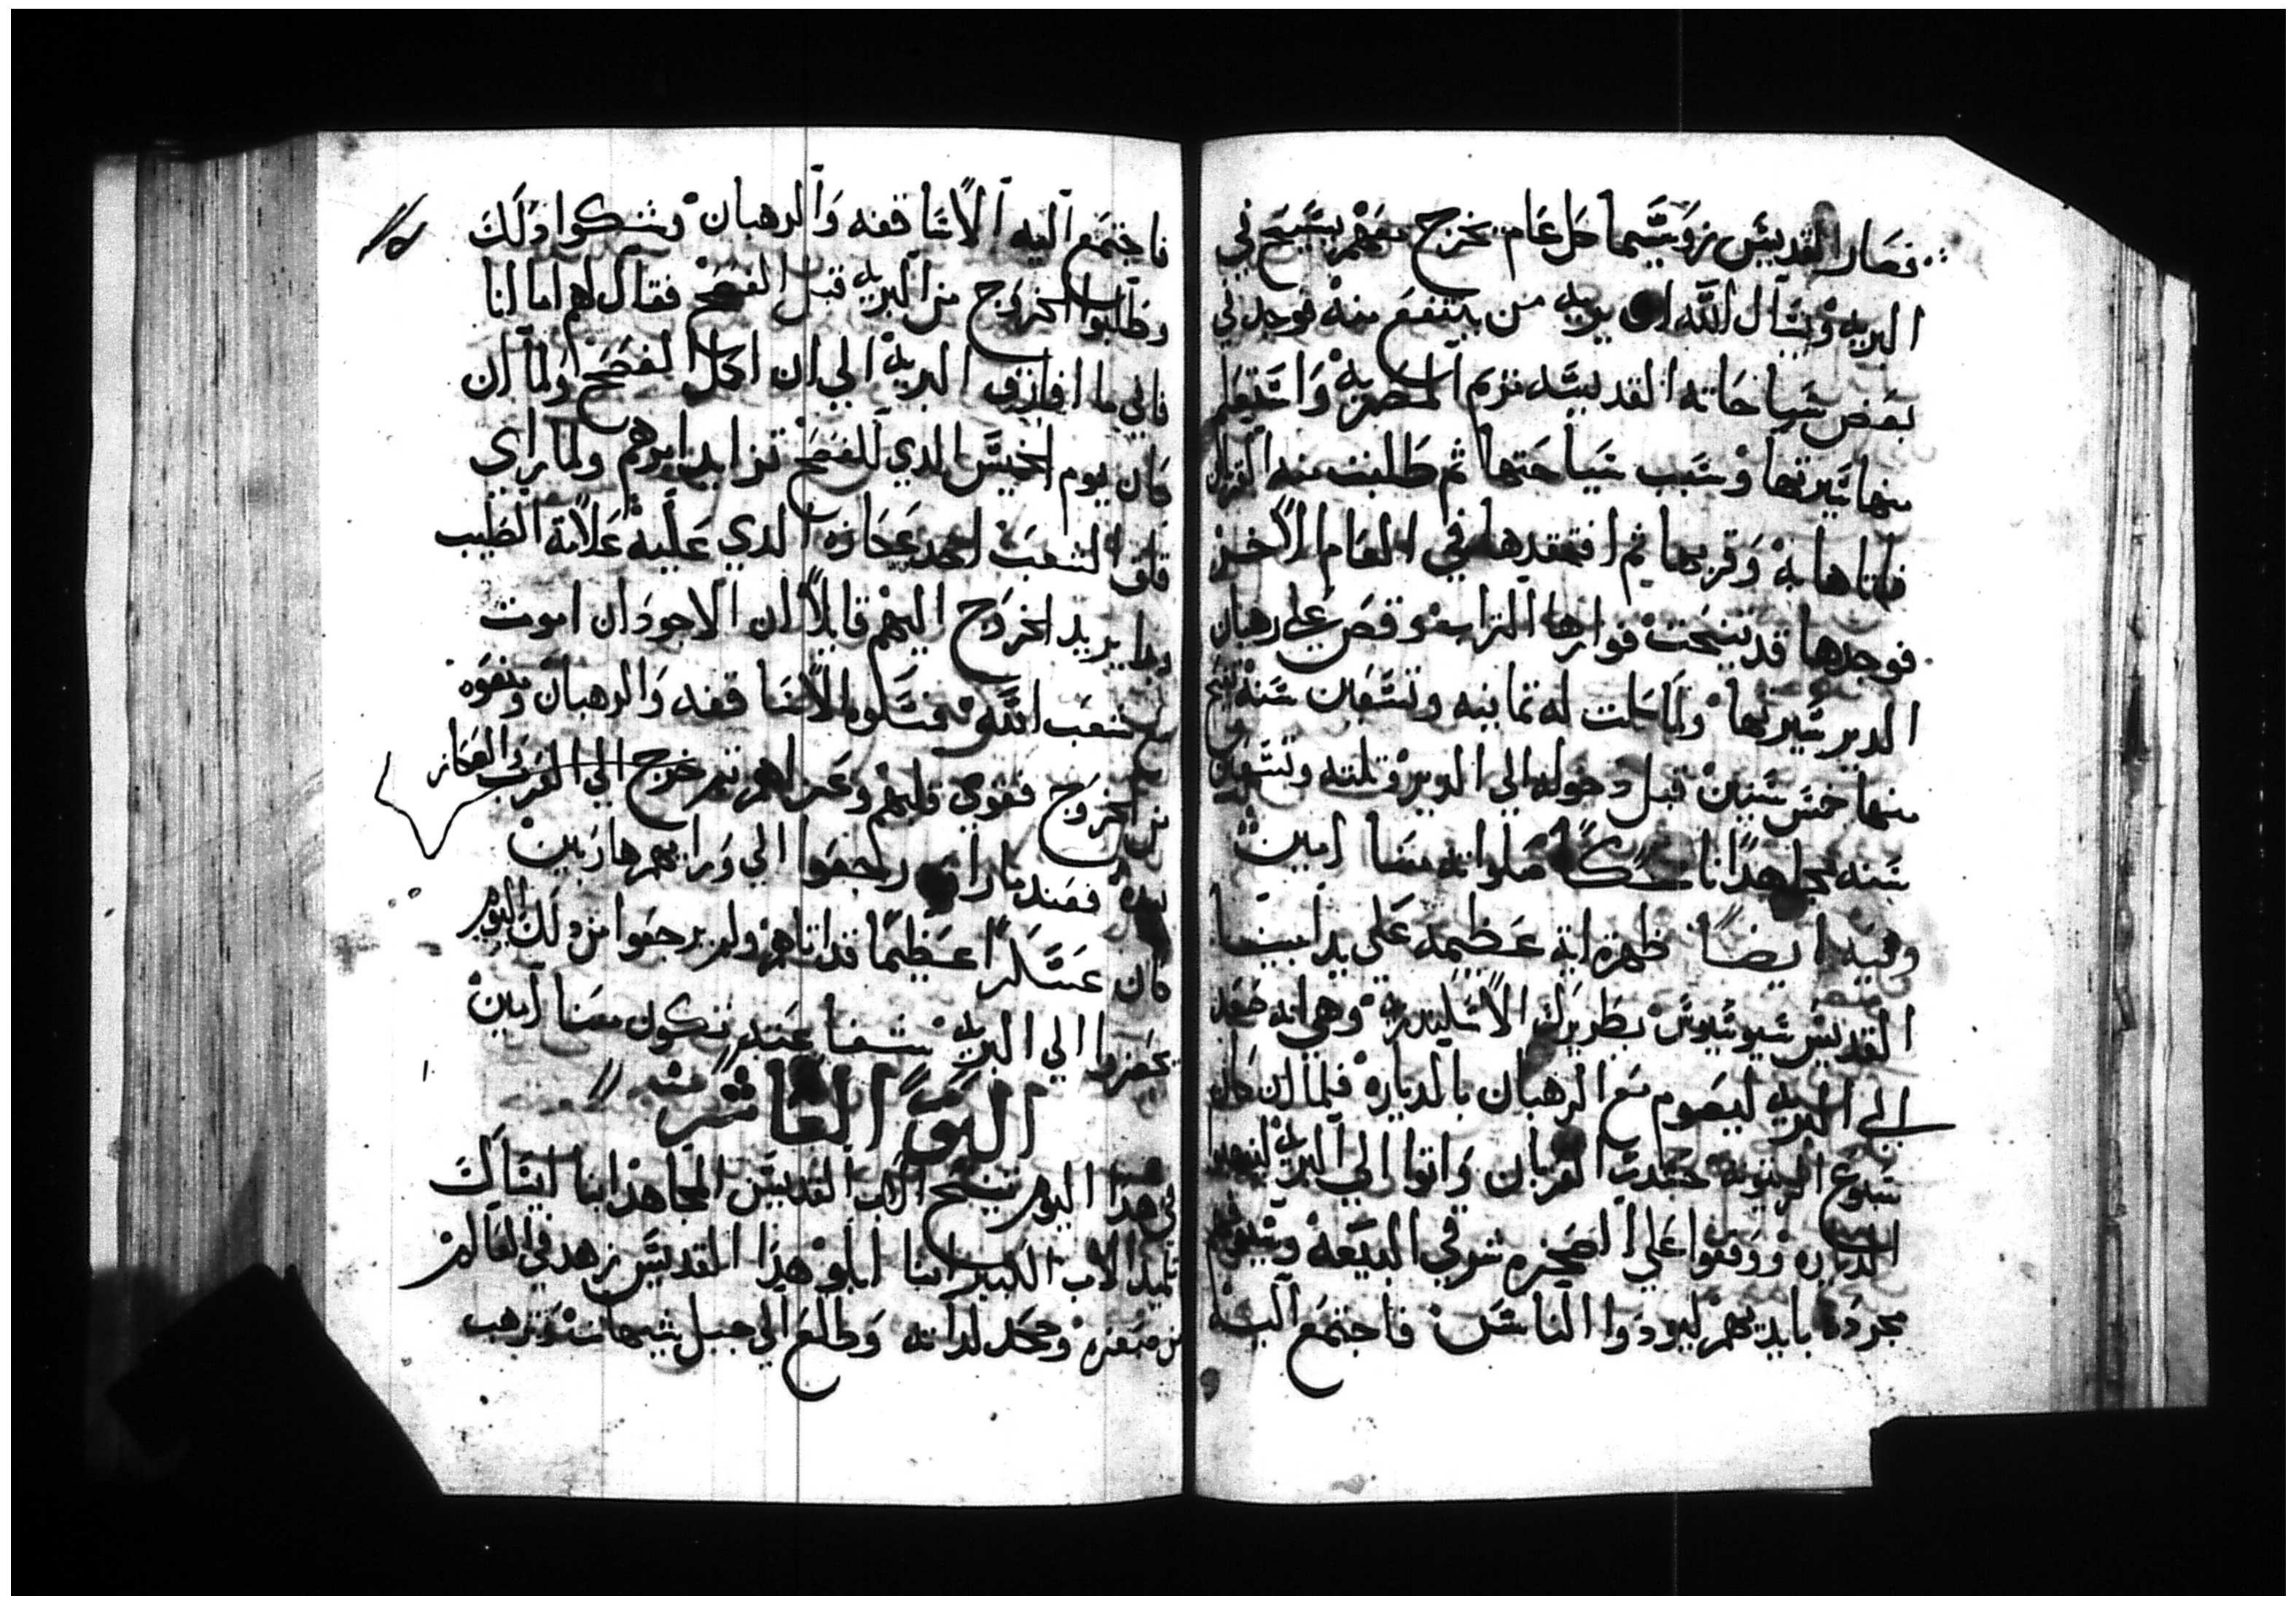 فصار القديس زوسيما كل عام يخرج معهم يسيح في
البريه ويسال الله ان يريه من ينتفع منه فوجد في
بعض سياحاته القديسه مريم المصريه واستعلم
منها سيرتها وسبب سياحتها ثم طلبت منه القربان
فاتاها به وقربها ثم افتقدها في العام الاخر
فوجدها قد تنيحت فوارها التراب وقص علي رهبان
الدير سيرتها ولما كملت له تمانيه وتسعين سنه تنيح
منها خمس سنين قبل دخوله الي الدير وتلته وتسعين
سنه مجاهدا ناسكا صلواته معنا امين
وفيه ايضا ظهرة ايه عظيمه علي يد ابينا
القديس سيوتيوس بطريرك الاسكندريه وهي انه صعد
الي البريه ليصوم مع الرهبان بالدياره فلما ان كان
سبوع الزيتونه حشدت العربان واتوا الي البريه لينهبوا
الدياره ووقفوا علي الصخره شرقي البيعه وسيوفهم
مجرده بايديهم ليودوا الناس فاجتمع اليه
فاجتمع اليه الاساقفه والرهبان وشكوا ذلك
وطلبوا الخروج من البريه قبل الفصح فقال لهم اما انا
فاني ما افارق البريه الي ان اكمل الفصح ولما ان
كان يوم الخميس الدي للفصح تزايد امرهم ولما راي
قلق الشعب اخد عكازه الدي عليه علامة الصليب
وطا يريد الخروج اليهم قايلا ان الاجود ان اموت
مع شعب الله فمسكوه الاساقفه والرهبان ومنعوه
من الخروج فقوي قلبهم وعزاهم ثم خرج الي العرب والعكاز
بيده فعند ما راوه رجعوا الي ورايهم هاربين
كان عسكرا عظيما قد اتاهم ولم يرجعوا من ذلك اليوم
تحفزوا الي البريه شفاعته تكون معنا امين
اليوم العاشر منه
في هذا اليوم تنيح الاب القديس المجاهد انبا ايساك
تلميد الاب الكبير انبا ابلو هذا القديس زهد في العالم
من صغره وجحد لداته وطلع الي جبل شيهات وترهب